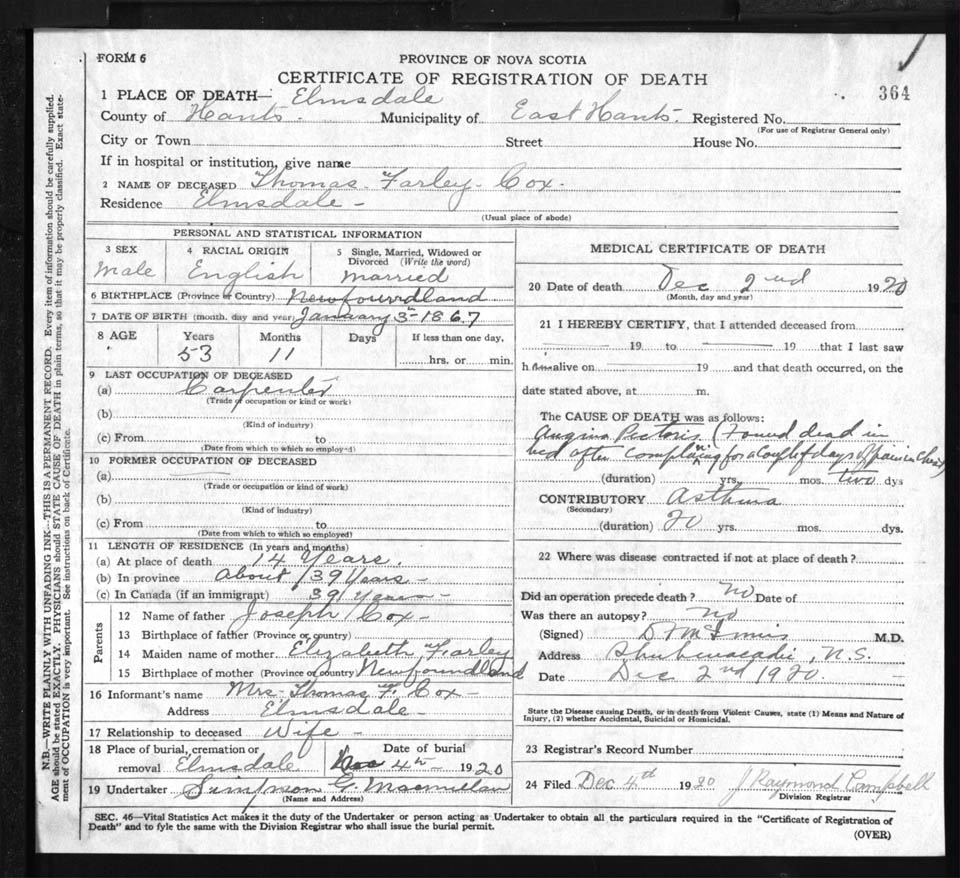 FORM 6
PROVINCE OF NOVA SCOTIA
CERTIFICATE OF REGISTRATION OF DEATH
364
1 PLACE OF DEATH— Elmsdale
County of Hants. Municipality of East Hants. Registered No.
(For use of Registrar General only)
City or Town Street House No.
If in hospital or institution, give name
2 NAME OF DECEASED Thomas Farley Cox.
Residence Elmsdale -
(Usual place of abode)
PERSONAL AND STATISTICAL INFORMATION
3 SEX 4 RACIAL ORIGIN 5 Single, Married, Widowed or Divorced (Write the word)
Male English Married
6 BIRTHPLACE (Province or Country) Newfoundland
7 DATE OF BIRTH (month, day and year) January 3 - 1867
8 AGE Years Months Days If less than one day,
53 11 hrs. or min.
9 LAST OCCUPATION OF DECEASED
(a) Carpenter
(Trade or occupation or kind or work)
(b)
(Kind of industry)
(c) From to
(Date from which to which so employed)
10 FORMER OCCUPATION OF DECEASED
(a)
(Trade or occupation or kind of work)
(b)
(Kind of industry)
(c) From to
(Date from which to which so employed)
11 LENGTH OF RESIDENCE (In years and months)
(a) At place of death 14 Years.
(b) In province About 39 Years -
(c) In Canada (if an immigrant) 39 Years -
Parents
12 Name of father Joseph Cox -
13 Birthplace of father (Province or country)
14 Maiden name of mother Elizabeth Farley
15 Birthplace of mother (Province or country Newfoundland
16 Informant's name Mrs. Thomas F. Cox -
Address Elmsdale -
17 Relationship to deceased Wife -
18 Place of burial, cremation or Date of burial
removal Elmsdale Dec 4th 1920
19 Undertaker Simpson G. Macmillan
(Name and Address)
MEDICAL CERTIFICATE OF DEATH
20 Date of death Dec 2nd 1920
(Month, day and year)
21 I HEREBY CERTIFY, that I attended deceased from
19 to 19 that I last saw
h alive on 19 and that death occurred, on the
date stated above, at m.
The CAUSE OF DEATH was as follows:
Angina Pectoris (Found dead in
bed after complaining for a couple of days of pain in Chest)
(duration) yrs. mos. two dys
CONTRIBUTORY Asthma
(Secondary)
(duration) 20 yrs. mos. dys.
22 Where was disease contracted if not at place of death?
Did an operation precede death? No Date of
Was there an autopsy? No
(Signed) M.D.
Address Shubenacadie, N.S.
Date Dec 2nd 1920.
State the Disease causing Death, or in death from Violent Causes, state (1) Means and Nature of
Injury, (2) whether Accidental, Suicidal or Homicidal.
23 Registrar's Record Number
24 Filed Dec 4th 1920 J Raymond Campbell
Division Registrar
SEC. 46—Vital Statistics Act makes it the duty of the Undertaker or person acting as Undertaker to obtain all the particulars required in the "Certificate of Registration of
Death" and to fyle the same with the Division Registrar who shall issue the burial permit.
(OVER)
N.B.—WRITE PLAINLY WITH UNFADING INK—THIS IS A PERMANENT RECORD. Every item of information should be carefully supplied.
AGE should be stated EXACTLY. PHYSICIANS should STATE CAUSE OF DEATH in plain terms, so that it may be properly classified. Exact state-
ment of OCCUPATION is very important. See instructions on back of Certificate.